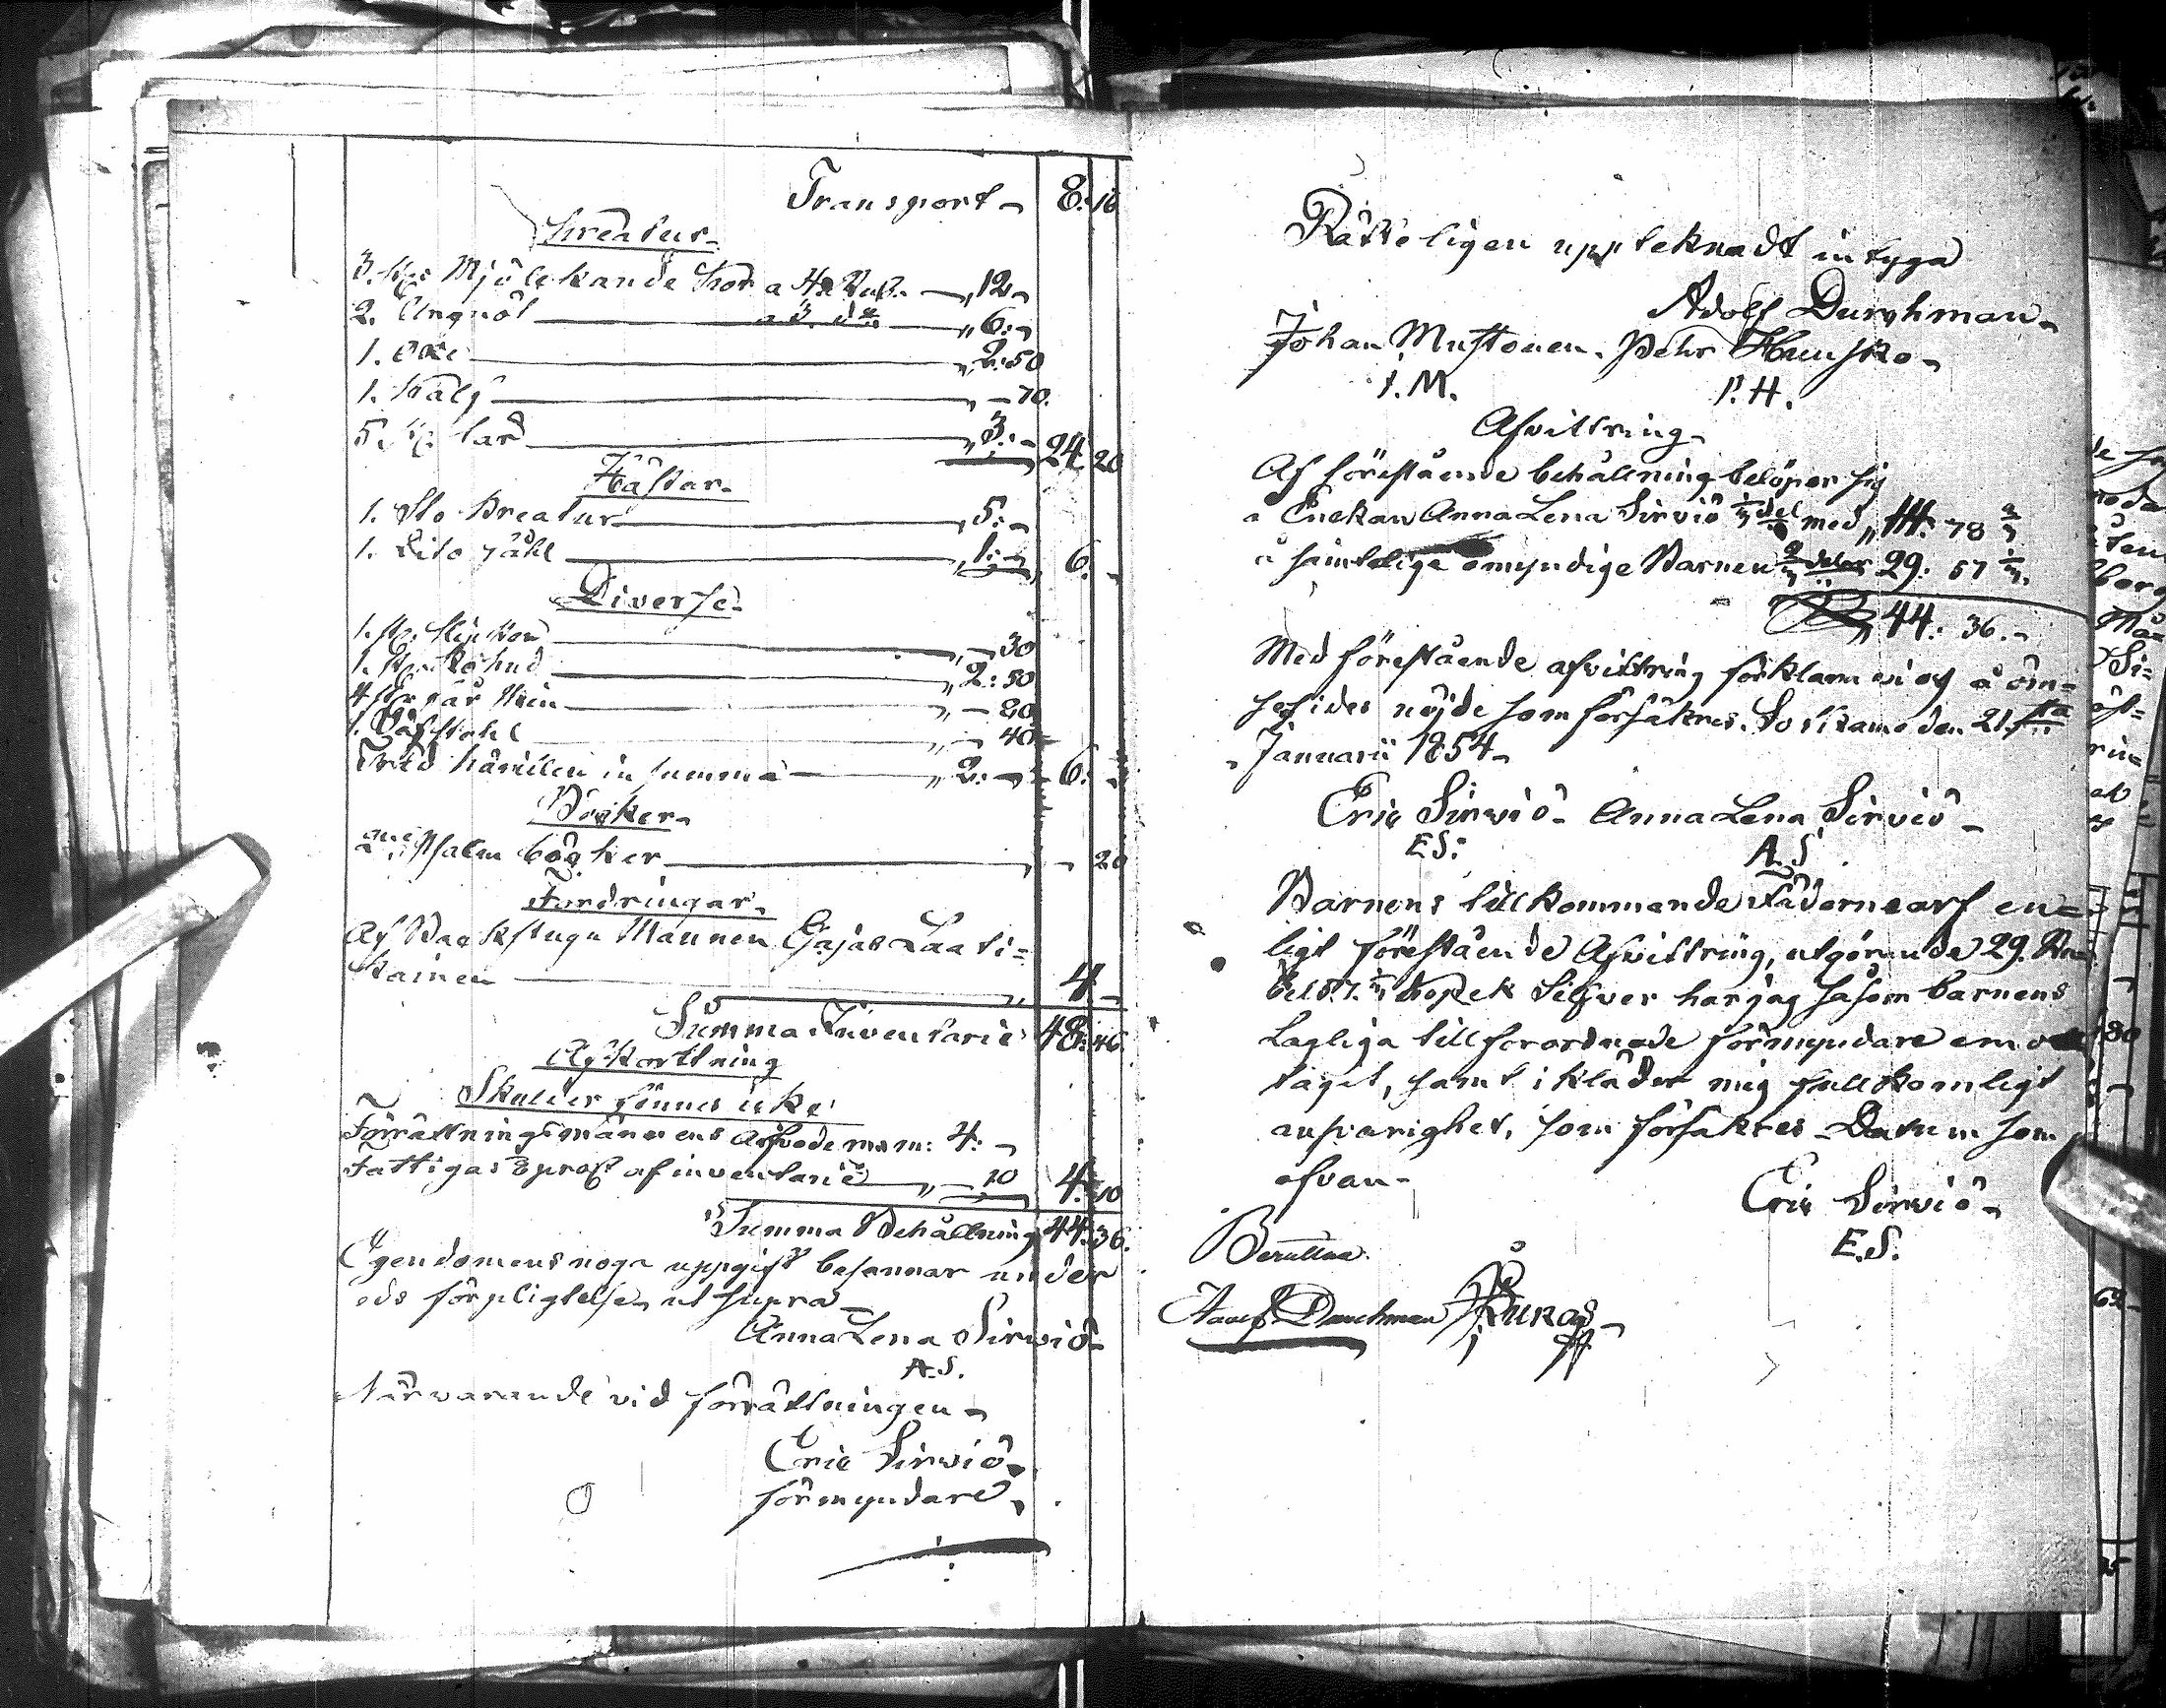 Transport 8. 16
Kreatur
3. st. Mjölkande kor a 4 Rub. — „ 12 „
2. Ungnöt — a 3. do — „ 6: „
1. Oxe — „ 2: 50
1. Kalf — „ — 70.
5. st. Får — „ 3: — 24. 20
Hästar
1. Sto Kreatur — „ 5: —
1. Dito Fåhl — „ 1: — 6. —
Diverse
1. st. — „ — 30
1. st. Kohud — „ 2: 50
4 — „ — 80
1. Väfstohl — „ — 40
Träd kärillen in summa — „ 2: — 6: —
Böcker
2ne Psalm böcker — — 20
Fordringar
Af Backstugu Mannen Gajas Laati=
kainen — 4 —
Summa Inventarie 48. 46.
Afkortning
Skulder finnes icke
Förrättningsmännens Arfvode m. m: 4: —
Fattigas procent af inventarie — „ — 10 4. 10
Summa Behållning 44. 36.
Egendomens noga uppgift besannar under
eds förpligtelse, ut supra —
Anna Lena Sirviö
A. S.
Närvarande vid förrättningen —
Eric Sirviö
förmyndare
Rätteligen uppteknadt intyga
Adolf Durchman
Johan Mustonen. Pehr Heusko
I. M. P. H.
Afvittring
Af förestående behållning belöper sig
a Enekan Anna Lena Sirviö 1/3 del med „ 14: 78 2/3
å samtelige omyndige Barnen 2/3 delar 29: 57 1/3.
44: 36. —
Med förestående afvittring förklara vi oss å öm=
sesides nöjde som försäkres. Sotkamo den 21sta
Januarii 1854
Eric Sirviö Anna Lena Sirviö
E S: A. S
Barnens tillkommande Fädernearf en=
ligt förestående Afvittring, utgörande 29. Ru
bel 57. 1/3 Kopek Silfver har jag såsom barnens
Lagliga tillförordnade förmyndare emot
taget, samt ikläder mig fullkomligt
ansvarighet, som försäkres Datum som
ofvan
Eric Sirviö
E. S.
Adolf Durchman